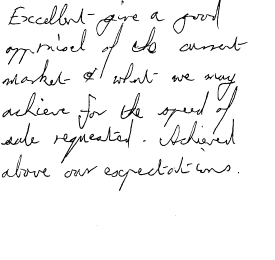 Excellent - give a good
appraisel of the current
market & what we may
achieve for the speed of
sale requested. Achieved
above our expectations.